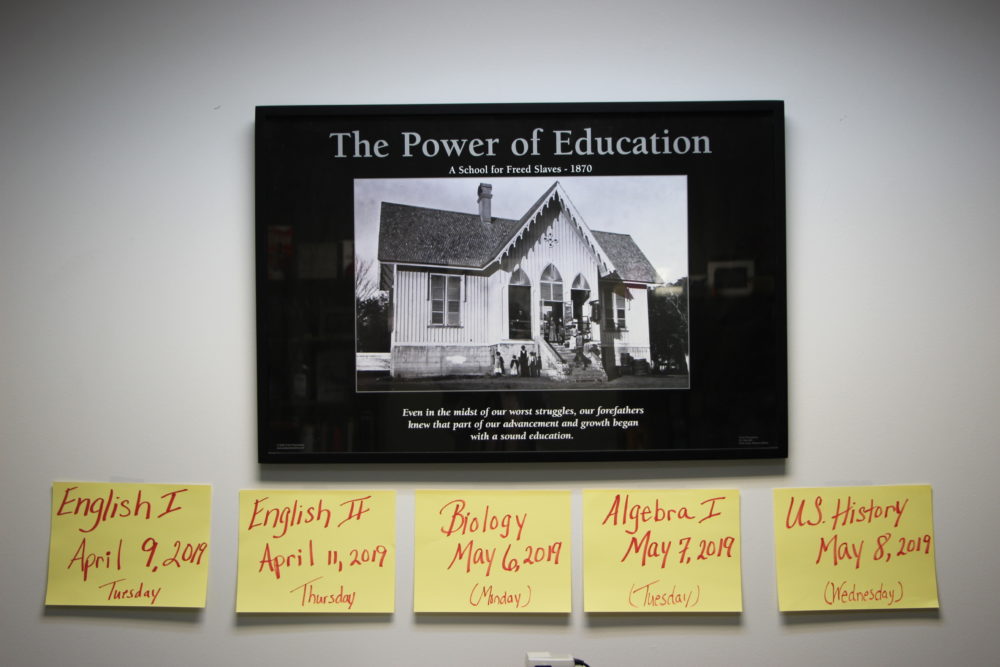 The Power of Education
A School for Freed Slaves - 1870
Even in the midst of our worst struggles, our forefathers
knew that part of our advancement and growth began
with a sound education.
English I
April 9, 2019
Tuesday
English II
April 11, 2019
Thursday
Biology
May 6, 2019
(Monday)
Algebra I
May 7, 2019
(Tuesday)
U.S. History
May 8, 2019
(Wednesday)